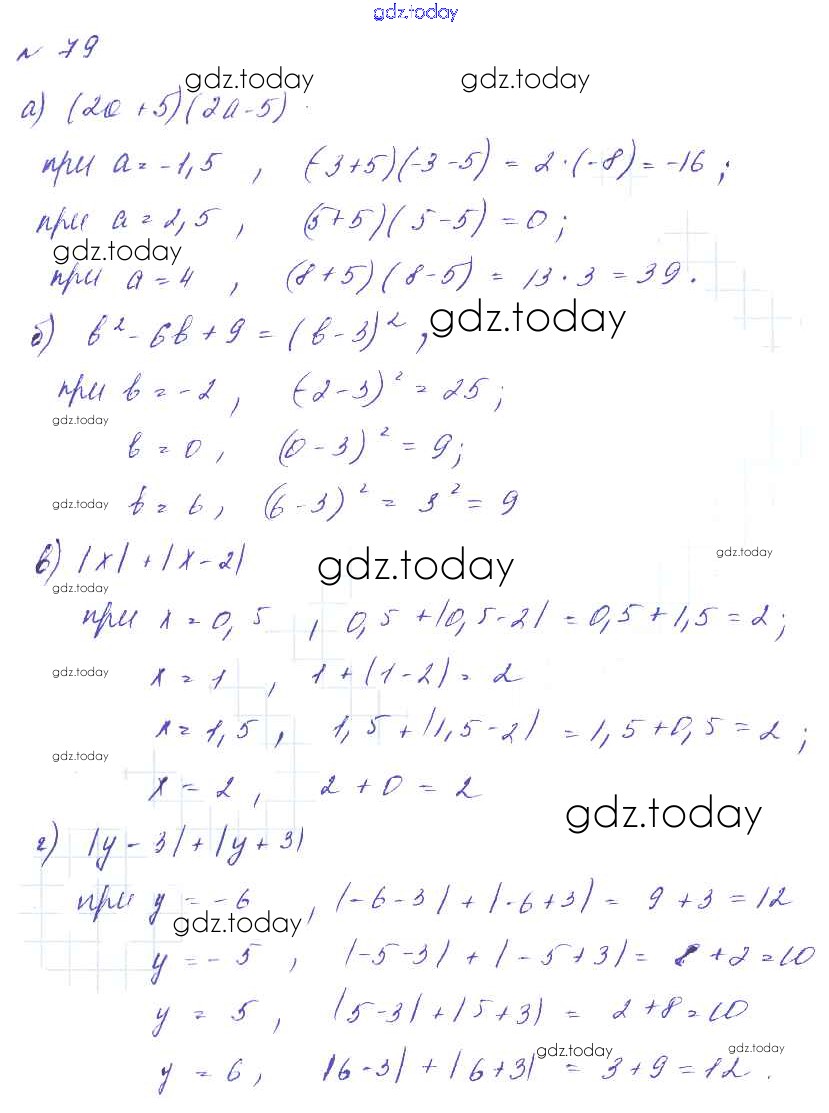 gdz.today
№ 79
gdz.today gdz.today
а) (2a+5)(2a-5)
при a=-1,5, (-3+5)(-3-5) = 2·(-8)=-16;
при a=2,5, (5+5)(5-5)=0;
gdz.today
при a=4, (8+5)(8-5) = 13·3=39.
б) b²-6b+9=(b-3)², gdz.today
при b=-2, (-2-3)²=25;
gdz.today
b=0, (0-3)²=9;
gdz.today b=6, (6-3)²=3²=9
в) |x|+|x-2| gdz.today gdz.today
gdz.today
при x=0,5, 0,5+|0,5-2|=0,5+1,5=2;
gdz.today x=1, 1+(1-2)=2
x=1,5, 1,5+|1,5-2|=1,5+0,5=2;
gdz.today
x=2, 2+0=2
gdz.today
г) |y-3|+|y+3|
при y=-6, |-6-3|+|-6+3|=9+3=12
gdz.today
y=-5, |-5-3|+|-5+3|=8+2=10
y=5, |5-3|+|5+3|=2+8=10
gdz.today gdz.today
y=6, |6-3|+|6+3|=3+9=12.